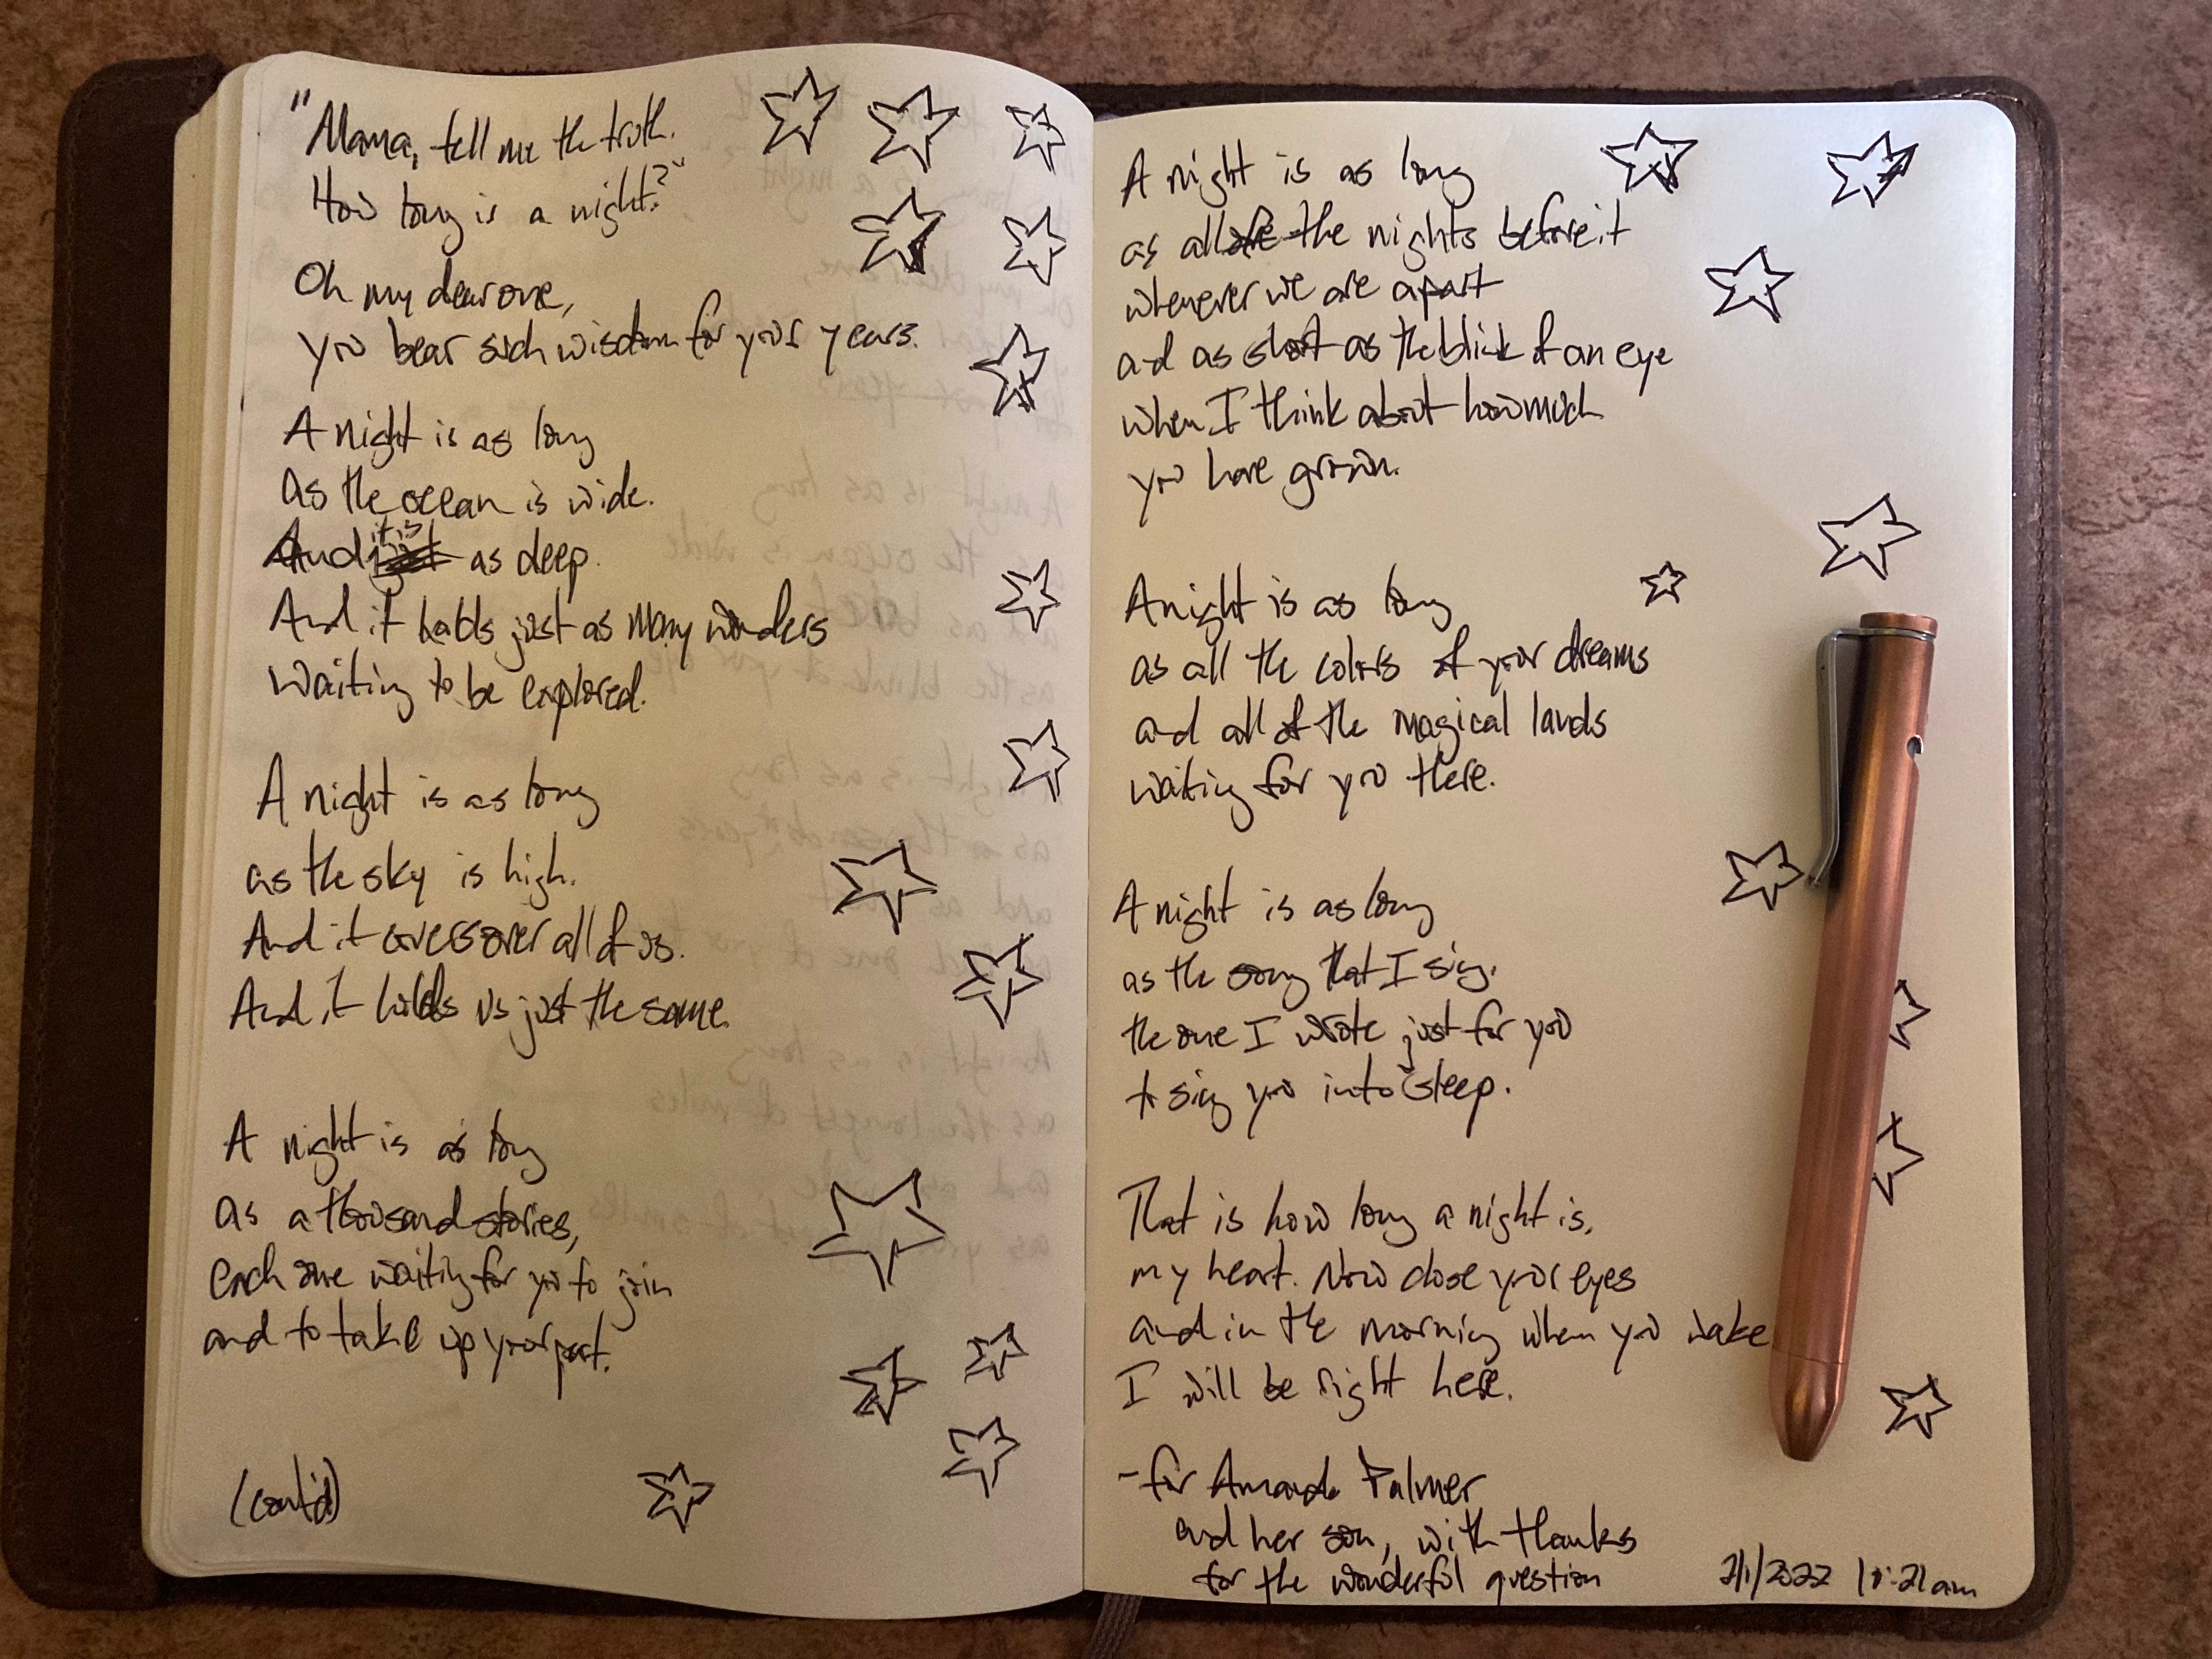 "Mama, tell me the truth.
How long is a night?"
Oh my dear one,
you bear such wisdom for your years.
A night is as long
as the ocean is wide.
And it is as deep.
And it holds just as many wonders
waiting to be explored.
A night is as long
as the sky is high.
And it covers over all of us.
And it holds us just the same.
A night is as long
as a thousand stories,
each one waiting for you to join
and to take up your part.
(cont'd)
A night is as long
as all of the nights before it
whenever we are apart
and as short as the blink of an eye
when I think about how much
you have grown.
A night is as long
as all the colors of your dreams
and all of the magical lands
waiting for you there.
A night is as long
as the song that I sing,
the one I wrote just for you
to sing you into sleep.
That is how long a night is,
my heart. Now close your eyes
and in the morning when you wake
I will be right here.
- for Amanda Palmer
and her son, with thanks
for the wonderful question
2/1/2022